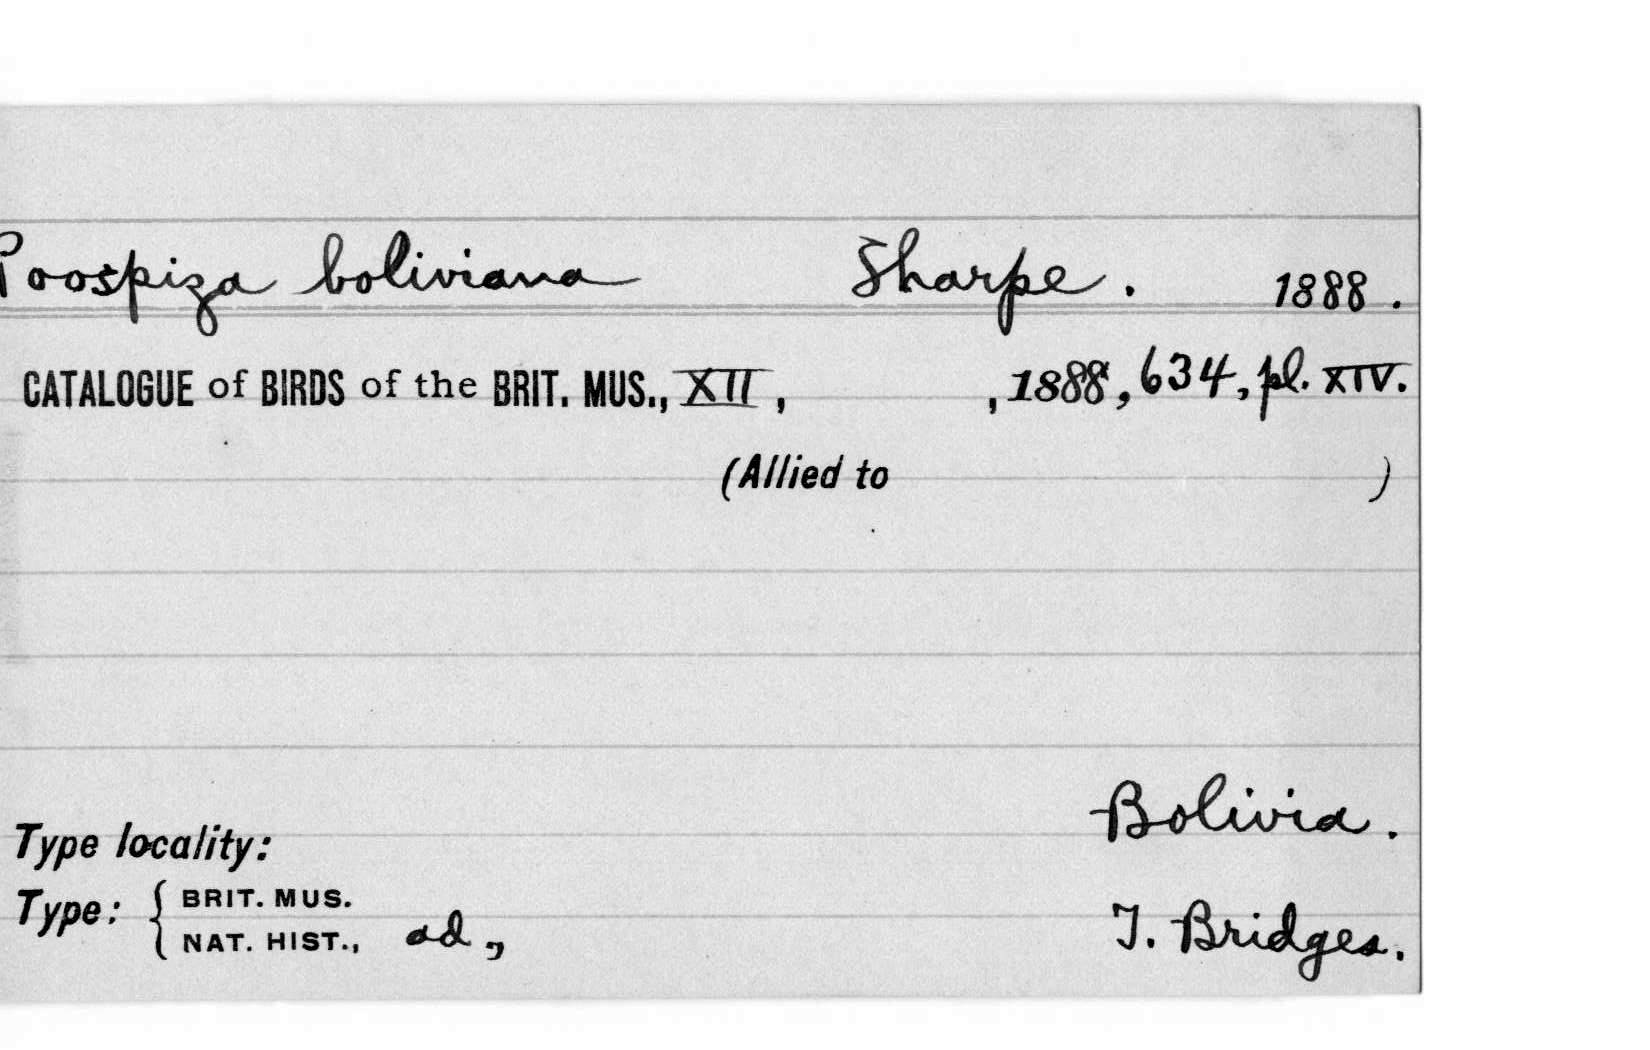 Poospiza boliviana Sharpe. 1888.
CATALOGUE of BIRDS of the BRIT. MUS., XII, , 1888, 634, pl. XIV.
(Allied to )
Bolivia.
Type locality:
Type: { BRIT. MUS.
NAT. HIST., ad, T. Bridges.